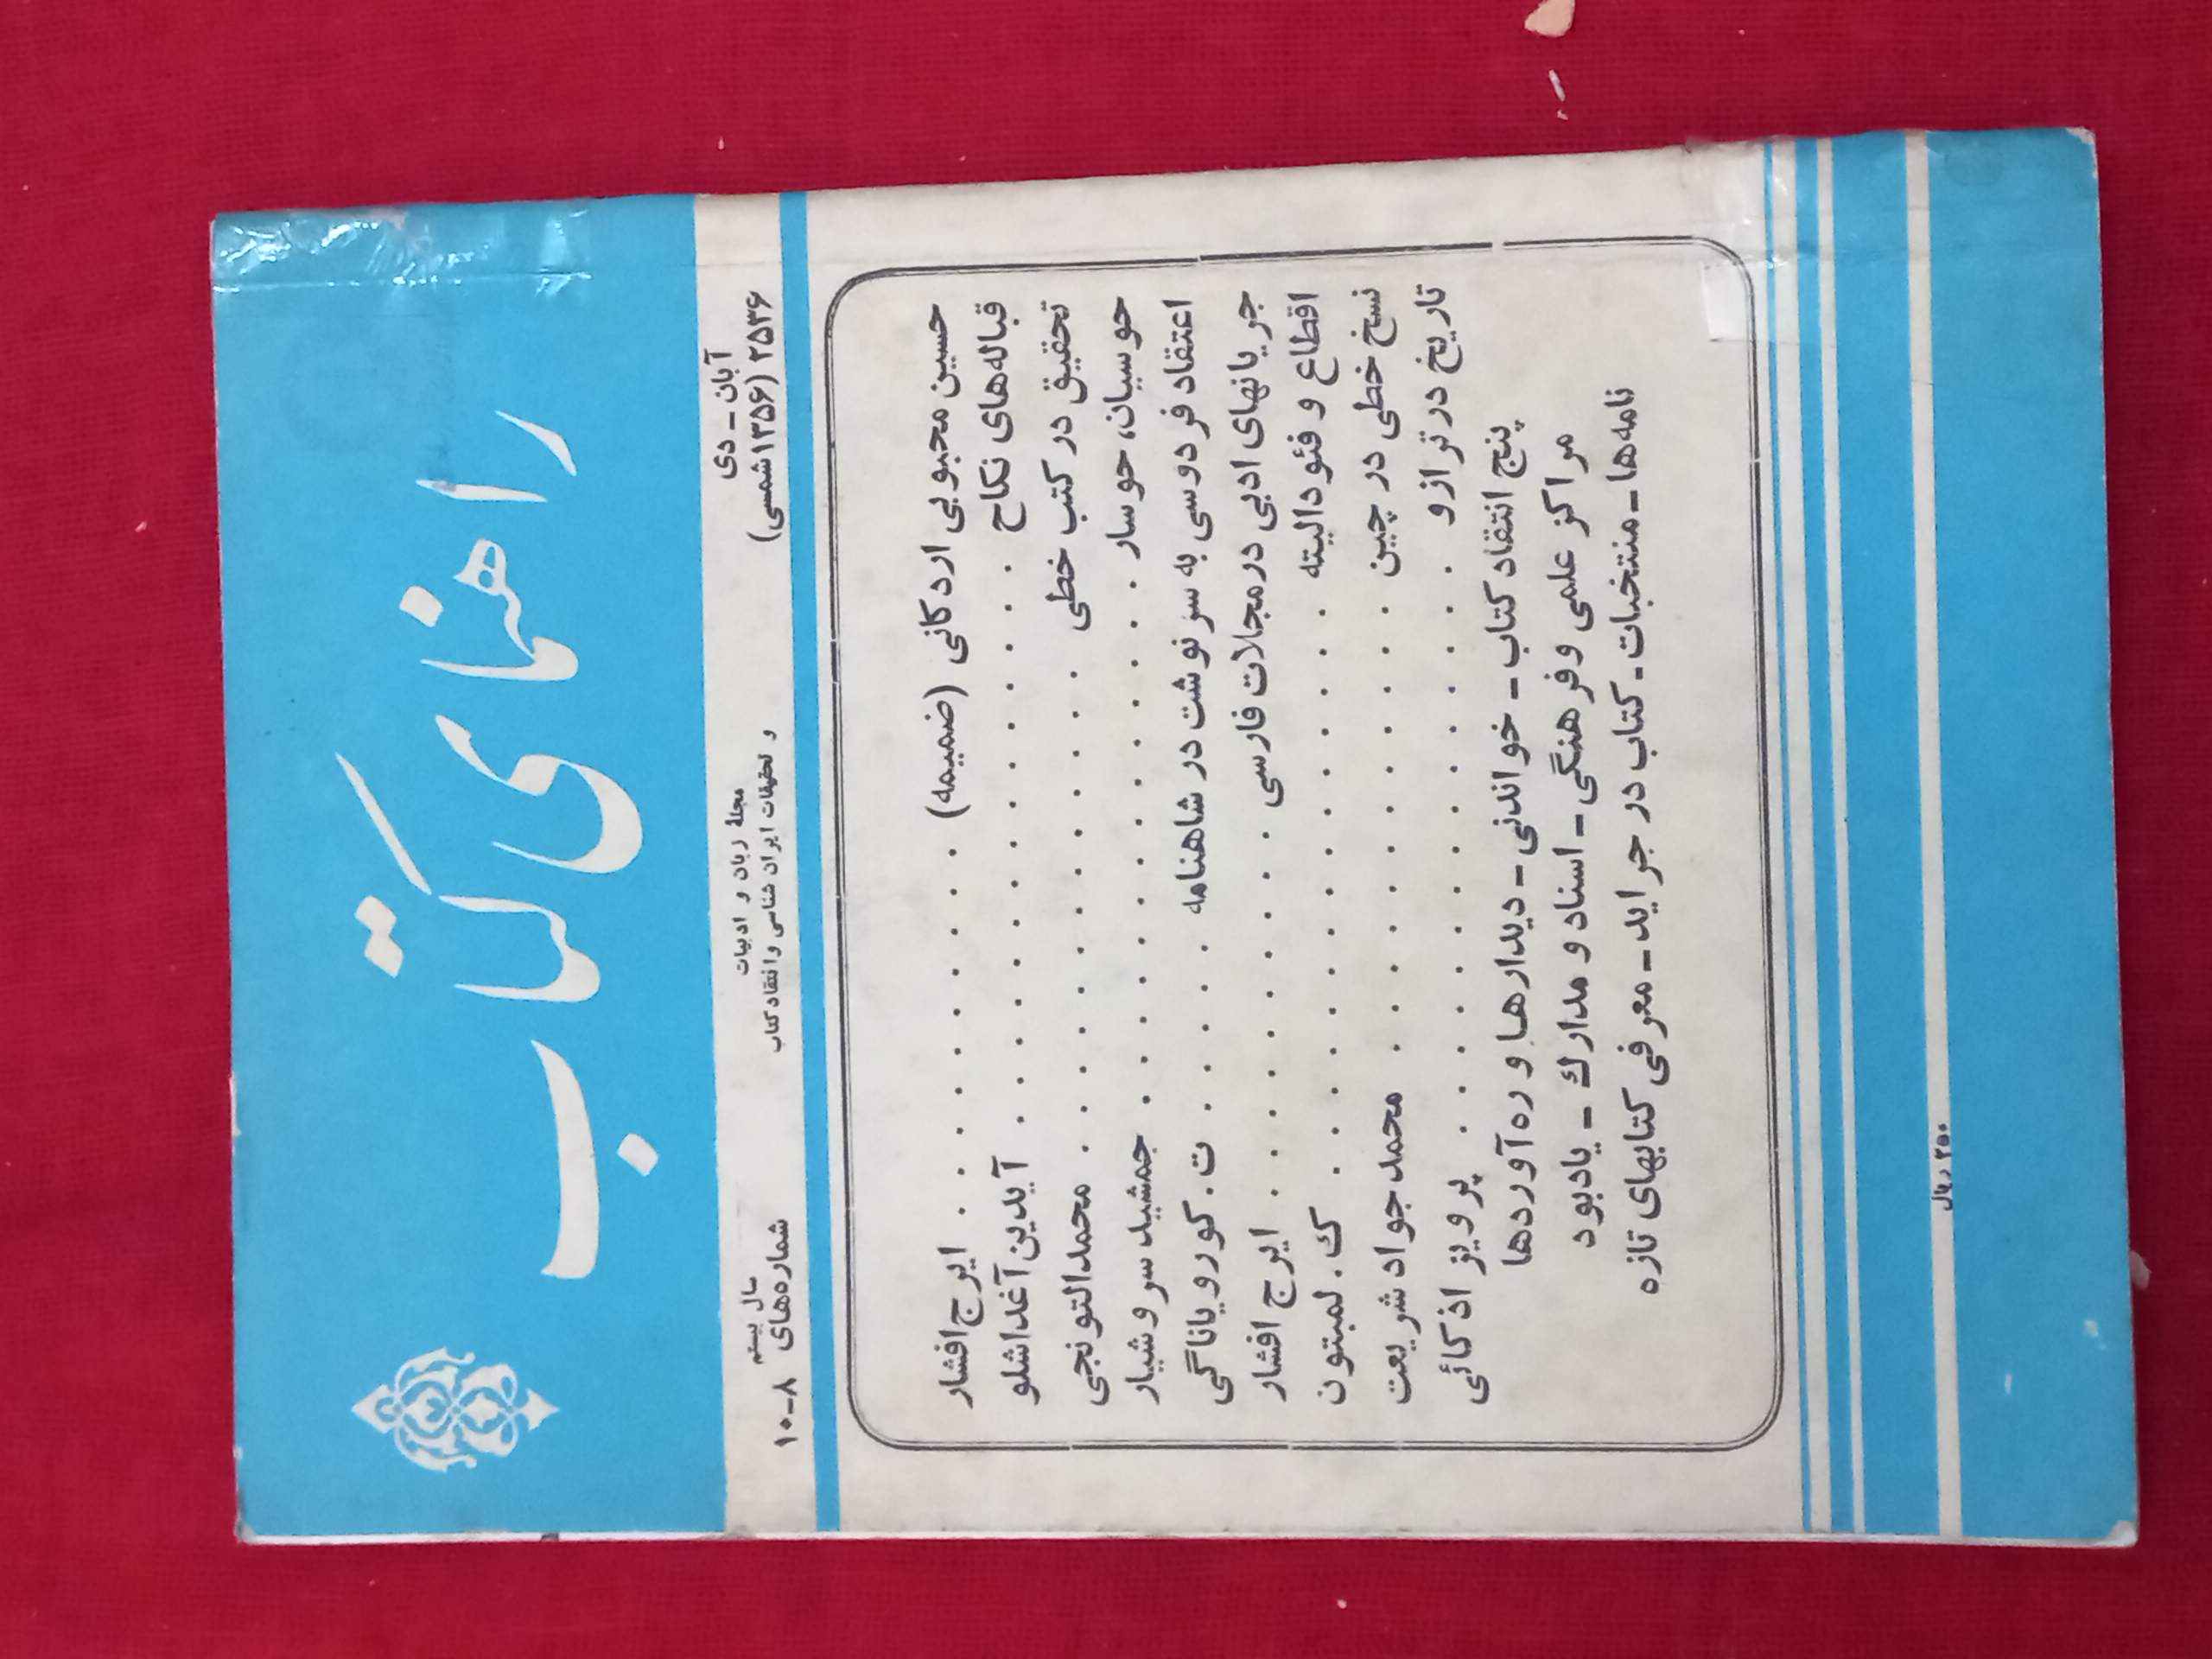 راهنمای کتاب
آبان - دی
۲۵۳۶ (۱۳۵۶ شمسی)
مجلهٔ زبان و ادبیات
و تحقیقات ایران شناسی و انتقاد کتاب
سال بیستم
شماره‌های ۸-۱۰
حسین محبوبی اردکانی (ضمیمه) . . . . . . ایرج افشار
قباله‌های نکاح . . . . . . . . . آیدین آغداشلو
تحقیق در کتب خطی . . . . . . . . محمد التونجی
حوسیان، حوسار . . . . . . . . . جمشید سروشیار
اعتقاد فردوسی به سرنوشت در شاهنامه . . . . ت. کورویاناگی
جریانهای ادبی در مجلات فارسی . . . . . . ایرج افشار
اقطاع و فئودالیته . . . . . . . . . ک. لمبتون
نسخ خطی در چین . . . . . . . محمد جواد شریعت
تاریخ در ترازو . . . . . . . . . پرویز اذکائی
پنج انتقاد کتاب - خواندنی - دیدارها و ره‌آوردها
مراکز علمی و فرهنگی - اسناد و مدارك - یادبود
نامه‌ها - منتخبات - کتاب در جراید - معرفی کتابهای تازه
۲۵۰ ریال